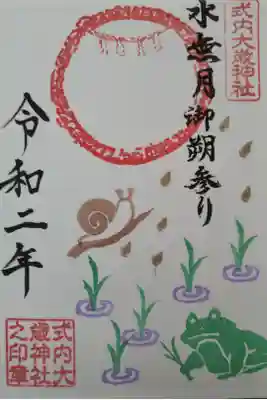 式内大歳神社
水無月御朔参り
令和二年
式内大
歳神社
之印章